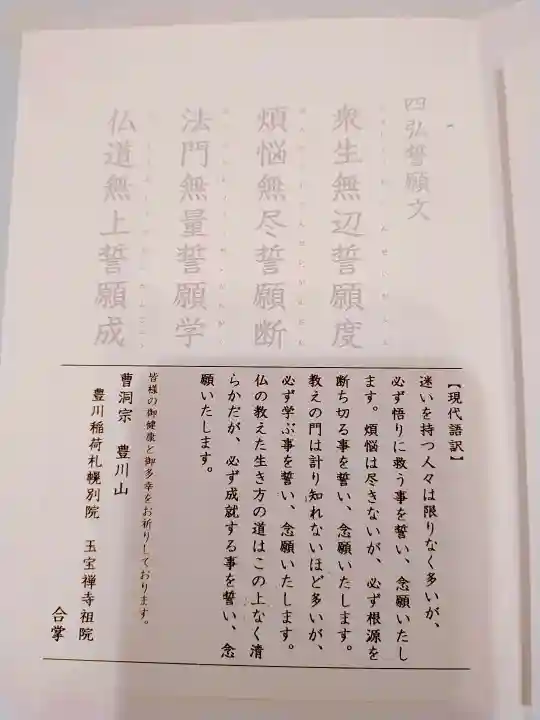 四弘誓願文
衆生無辺誓願度
煩悩無尽誓願断
法門無量誓願学
仏道無上誓願成
【現代語訳】
迷いを持つ人々は限りなく多いが、
必ず悟りに救う事を誓い、念願いたし
ます。煩悩は尽きないが、必ず根源を
断ち切る事を誓い、念願いたします。
教えの門は計り知れないほど多いが、
必ず学ぶ事を誓い、念願いたします。
仏の教えた生き方の道はこの上なく清
らかだが、必ず成就する事を誓い、念
願いたします。
皆様の御健康と御多幸をお祈りしております。
曹洞宗 豊川山
豊川稲荷札幌別院 玉宝禅寺祖院
合掌